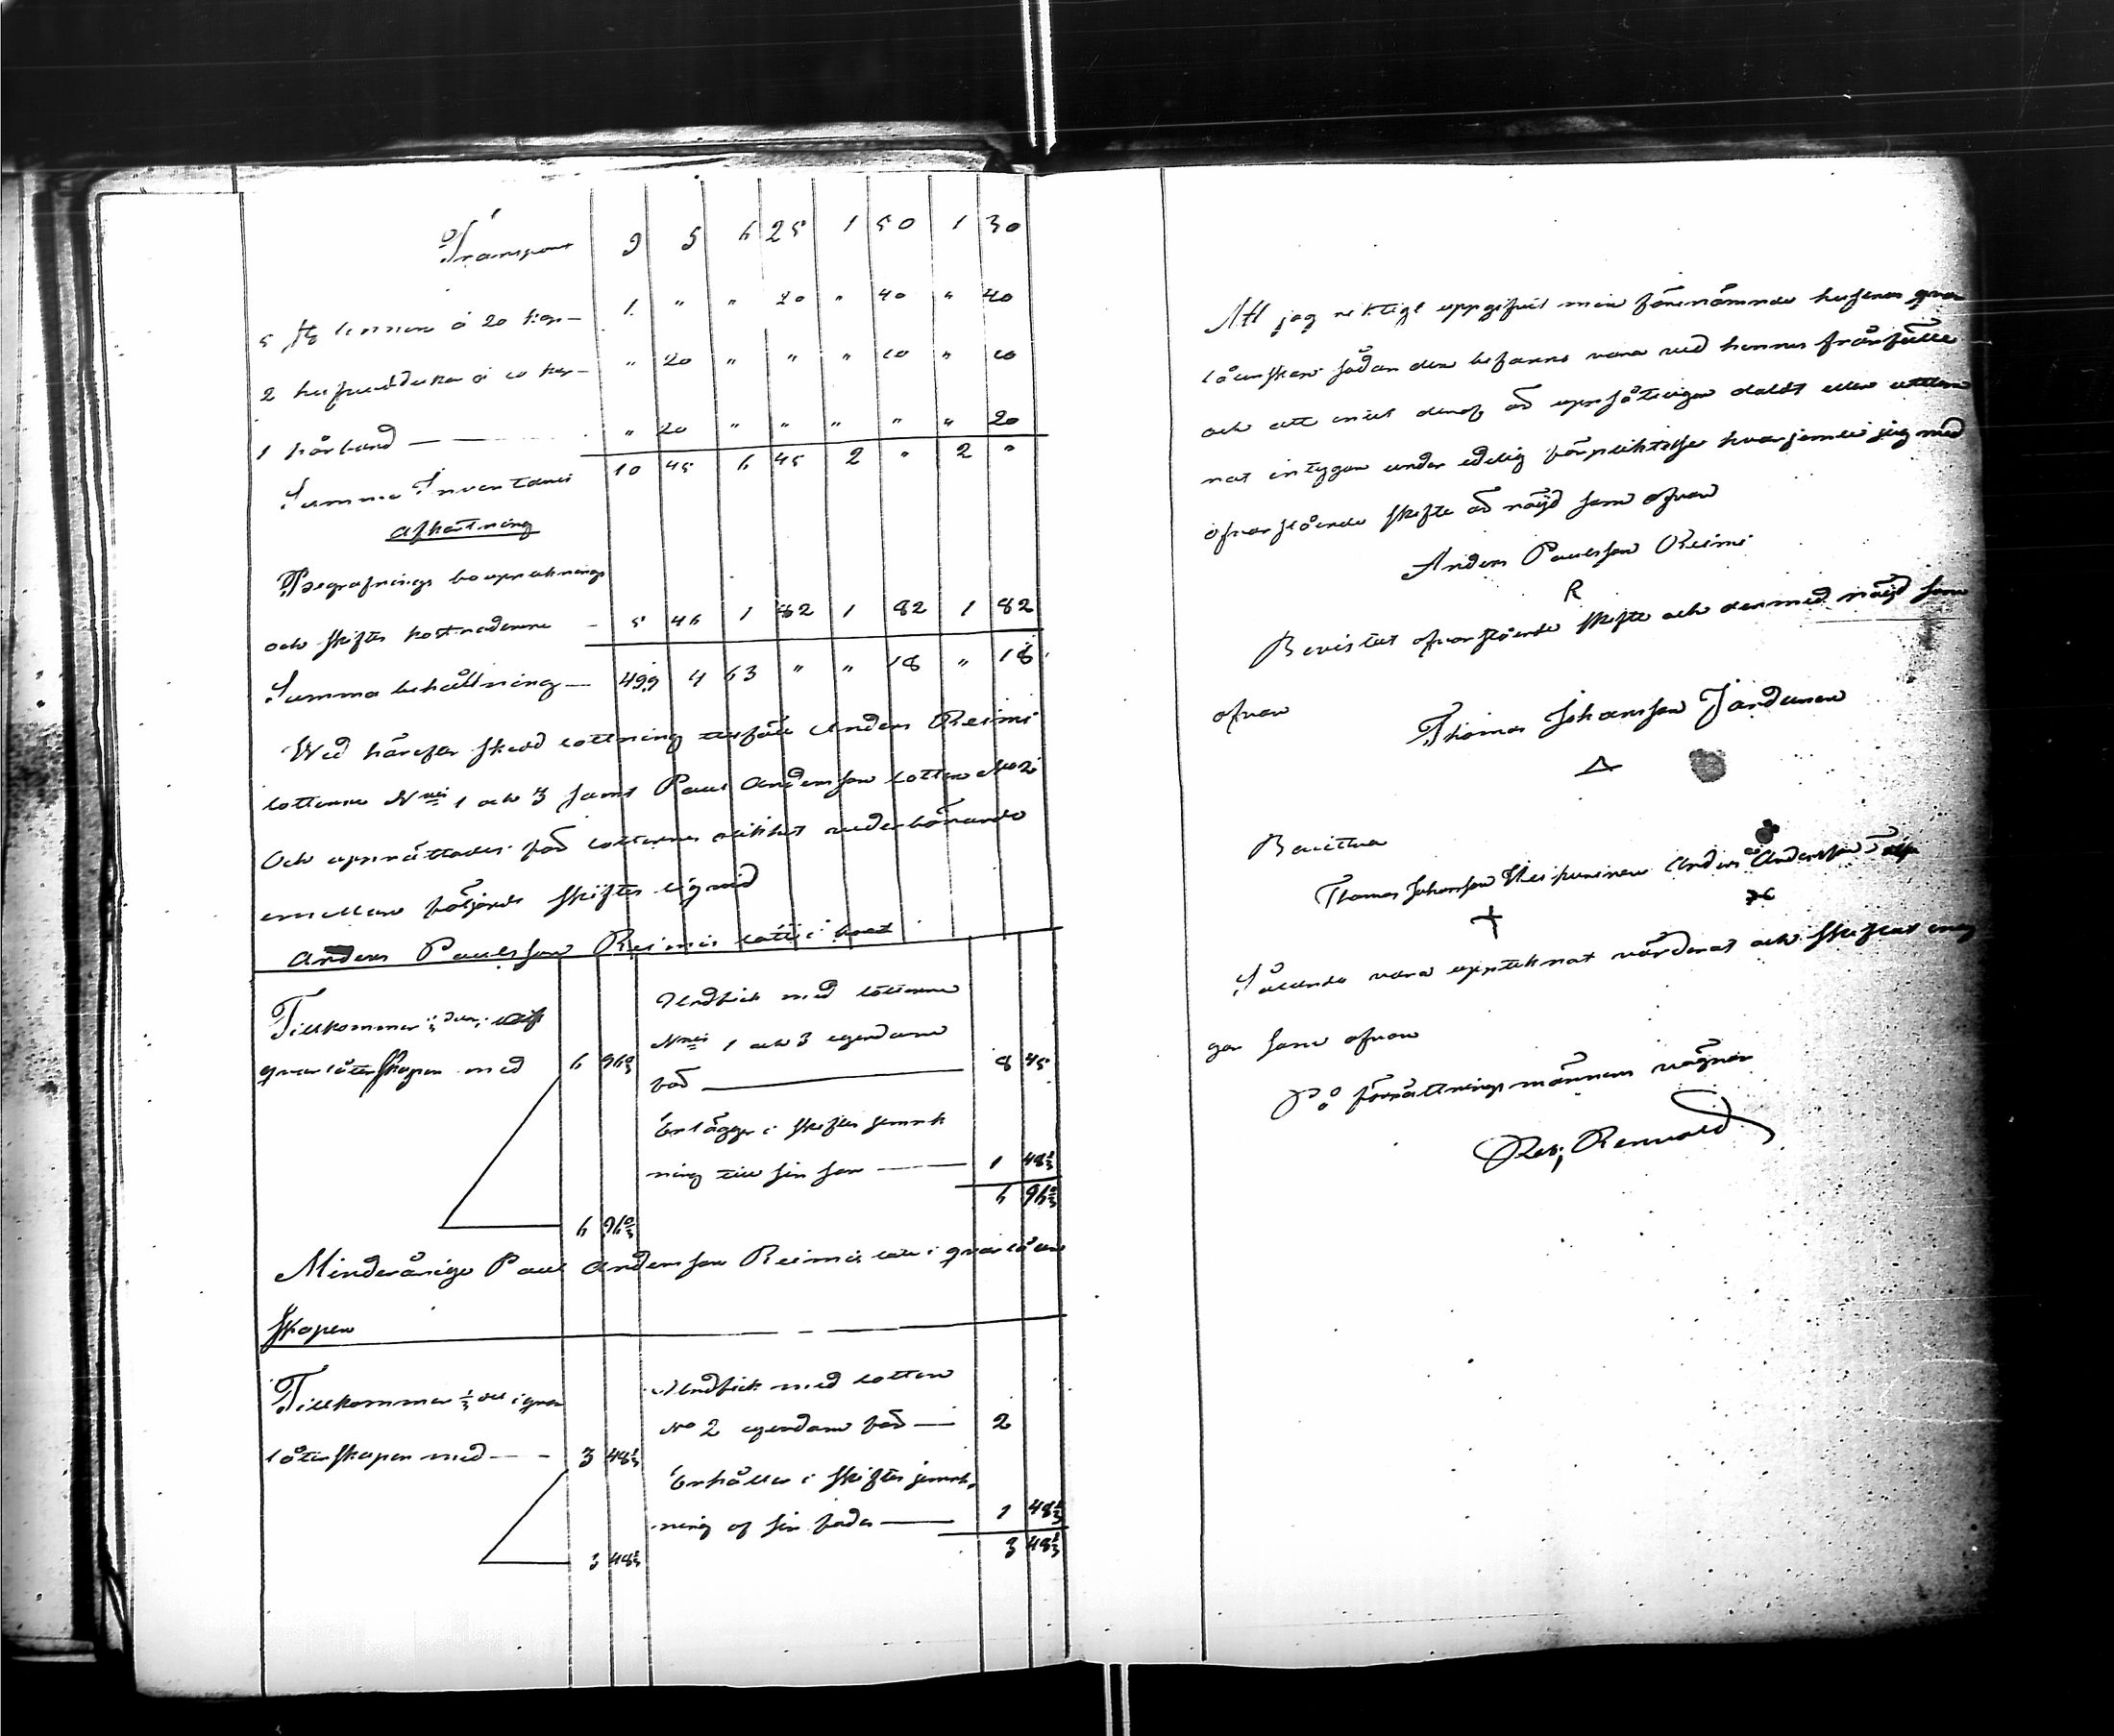 Transport 9 5 6 25 1 50 1 30
5 st: linnen á 20 kop— 1 " " 20 " 40 " 40
2 hufvuddukar á 10 kop— " 20 " " " 10 " 10
1 hårband — " 20 " " " " " 20
Summa Inventarii 10 45 6 45 2 " 2 "
Afkortning
Begrafnings bouppteknings
och skiftes kostnaderne — 5 46 1 82 1 82 1 82
Summa behållning — 4 99 4 63 " " 18 " 18
Wid härefter skedd lottning tillföll Anders Reimi
lotterne N:ris 1 och 3 samt Paul Andersson lotten No 2
Och upprättades på lotternes rikhet vederbörande
emellan följande skiftes liqvid
Anders Paulsson Reimis lott i boet
Tillkommer 2/3 del: i
qvarlåtenskapen med 6 96 2/3
Undfick med lotterne
N:ris 1 och 3 egendom
på — 8 45
Erlägger i skiftes jemnk
ning till sin son — 1 48 1/3
6 96 2/3
6 96 2/3
Minderårige Paul Andersson Reimis lott i qvarlåten
skapen
Tillkommer 1/3 del i qvar
låtenskapen med — 3 48 1/3
Undfick med lotten
No 2 egendom på — 2
Erhåller i skiftes jemnk
ning af sin fader — 1 48 1/3
3 48 1/3
3 48 1/3
Att jag riktigt uppgifvit min förenämnde hustrus qvar
låtenskap sådan den befanns vara vid hennes frånfälle
och att intet deraf är uppsåtligen doldt eller utlem
nat intygar under edelig förpliktelse hvarjemte jag med
ofvanstående skifte är nöjd som ofvan
Anders Paulsson Reimi
R
Bevistat ofvanstående skifte och dermed nöjd som
ofvan
Thomas Johansson Jordanen
Bevittna
Thomas Johansson Anders Andersson
Sålunda vara upptecknat värderat och skiftat inty
gar som ofvan
På förrättningsmännens vägnar
Renvald